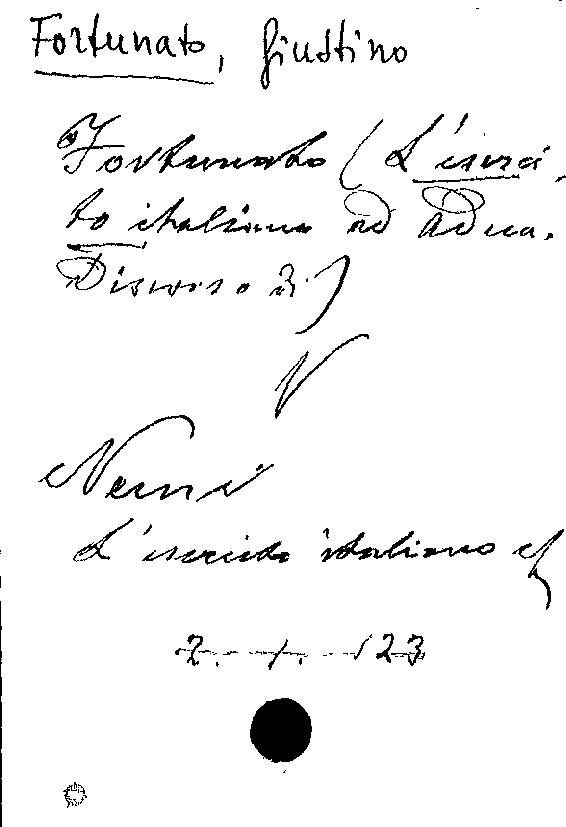 Fortunato, Giustino
Fortunato (L'eserci-
to italiano ad Adua.
Discorso 2.)
V
Nemi
L'esercito italiano